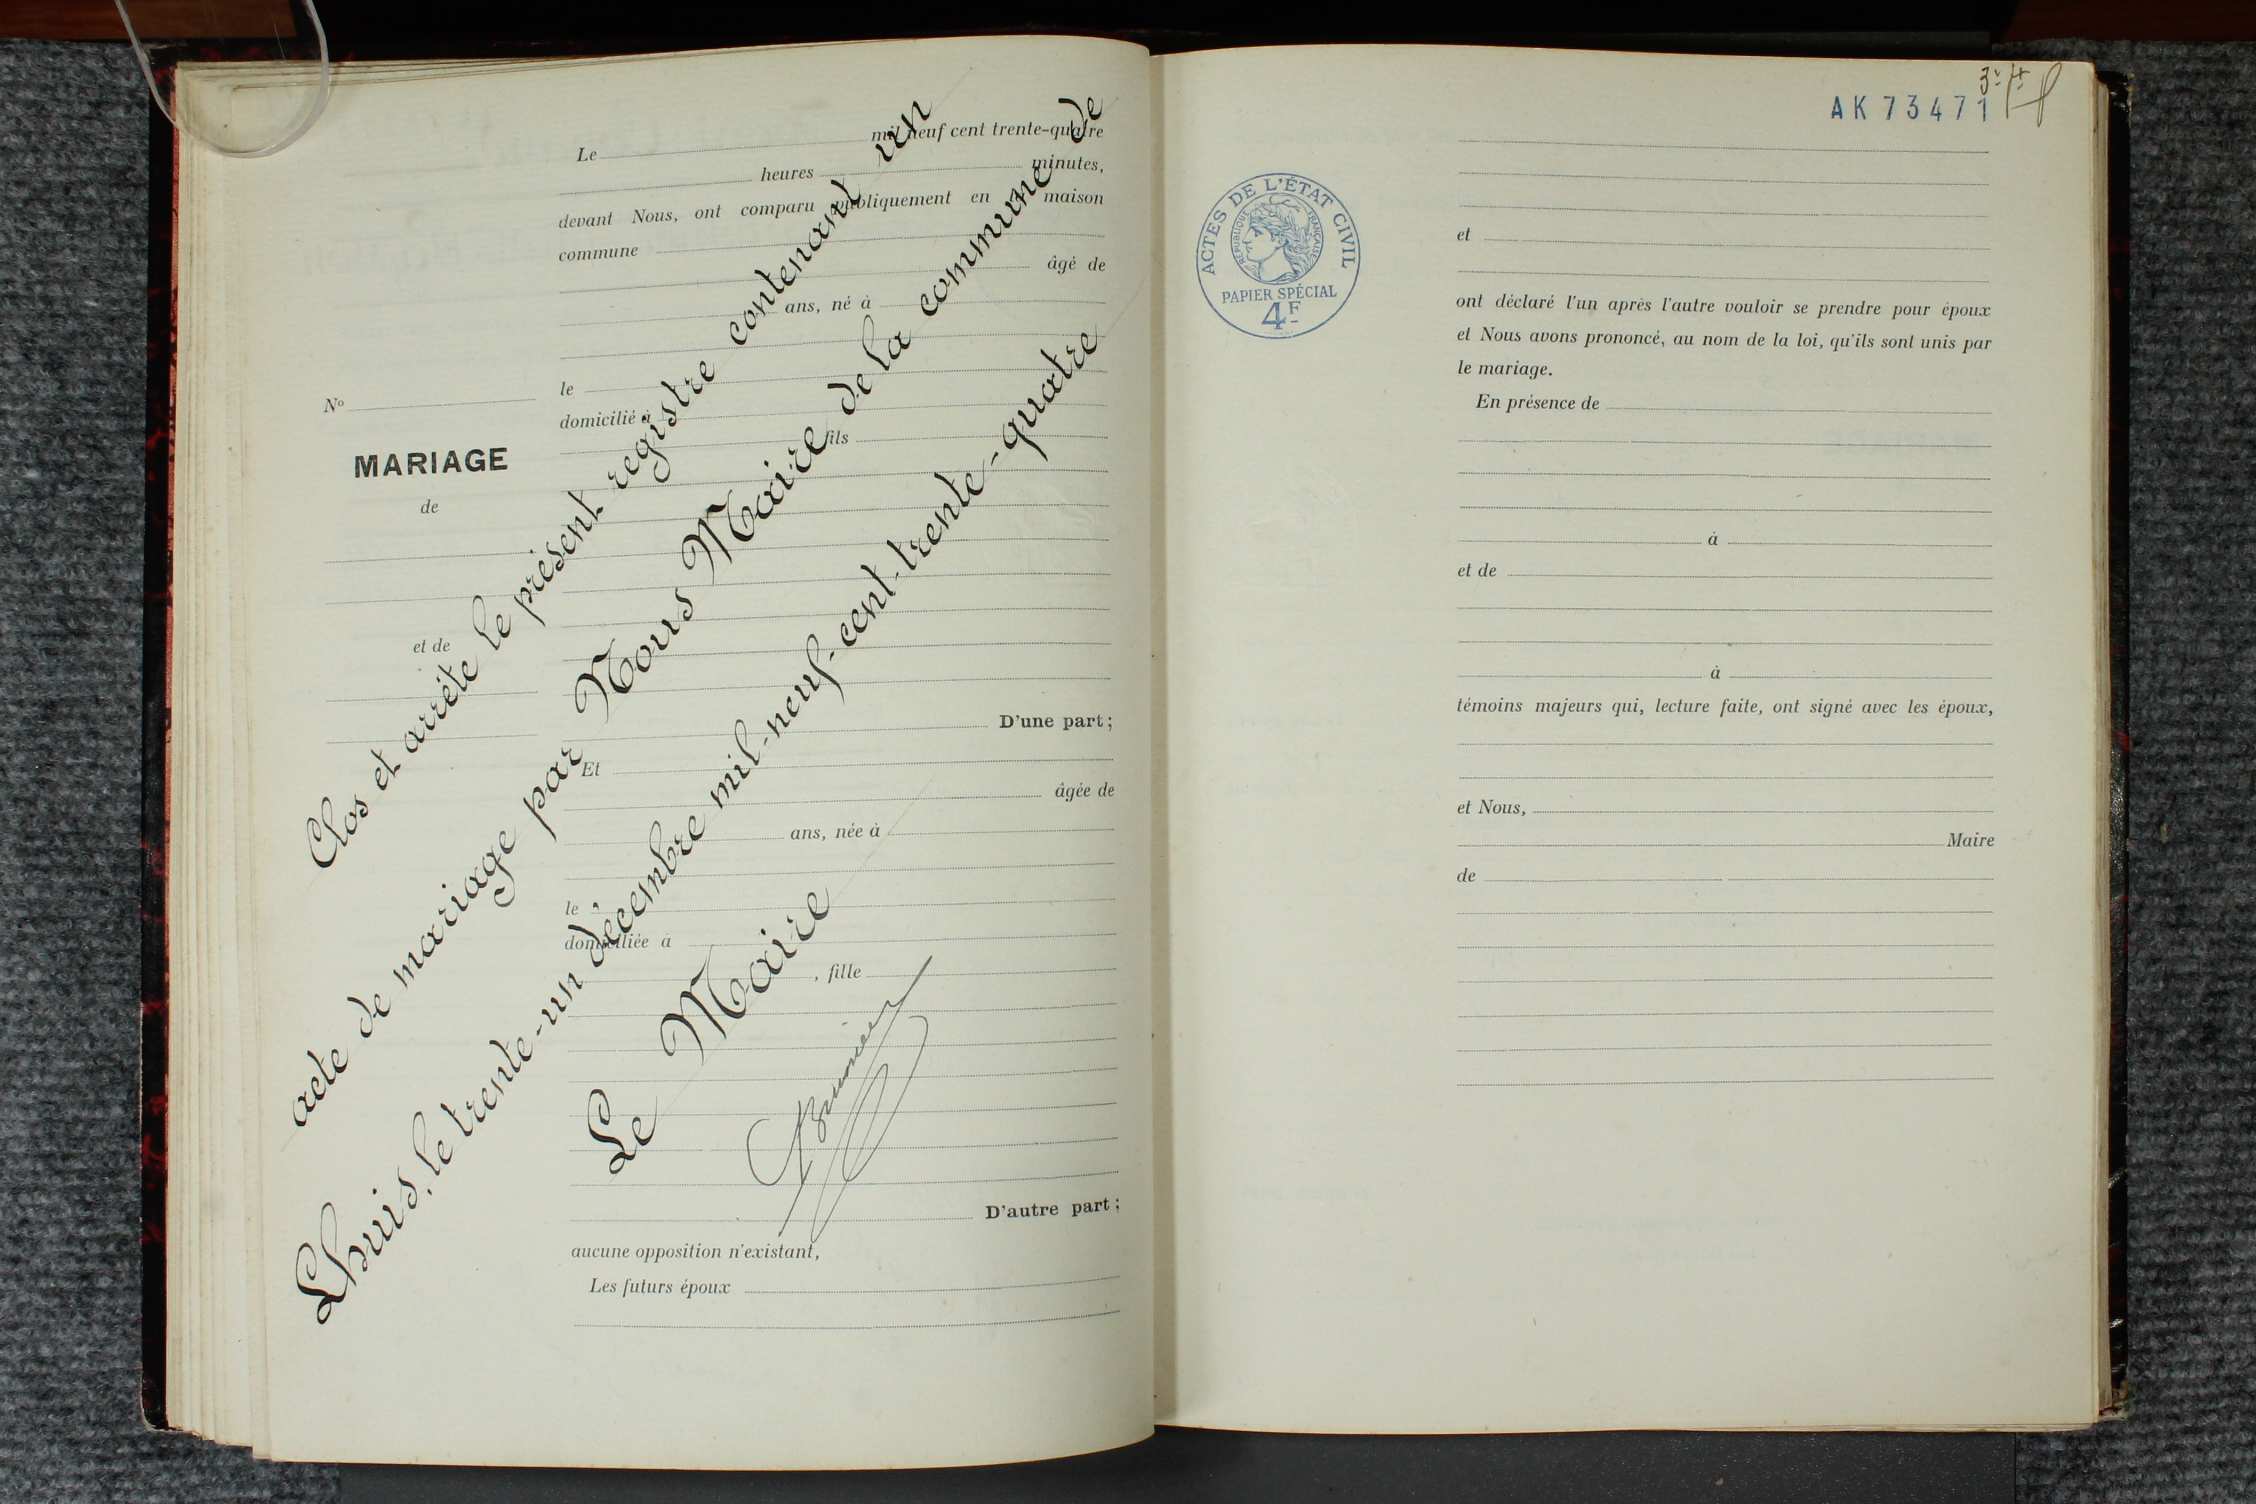 Le mil neuf cent trente-quatre
heures minutes,
devant Nous, ont comparu publiquement en maison
commune
âgé de
ans, né à
le
domicilié à
fils
D'une part;
Et
âgée de
ans, née à
le
domiciliée à
, fille
D'autre part;
aucune opposition n'existant,
Les futurs époux
No
MARIAGE
de
et de
Clos et arrêté le présent registre contenant un
acte de mariage par Nous Maire de la commune de
Lhuis, le trente-un décembre mil-neuf-cent-trente-quatre
Le Maire
AK 73471
ACTES DE L'ÉTAT CIVIL
RÉPUBLIQUE FRANÇAISE
PAPIER SPÉCIAL
4F
et
ont déclaré l'un après l'autre vouloir se prendre pour époux
et Nous avons prononcé, au nom de la loi, qu'ils sont unis par
le mariage.
En présence de
à
et de
à
témoins majeurs qui, lecture faite, ont signé avec les époux,
et Nous,
Maire
de